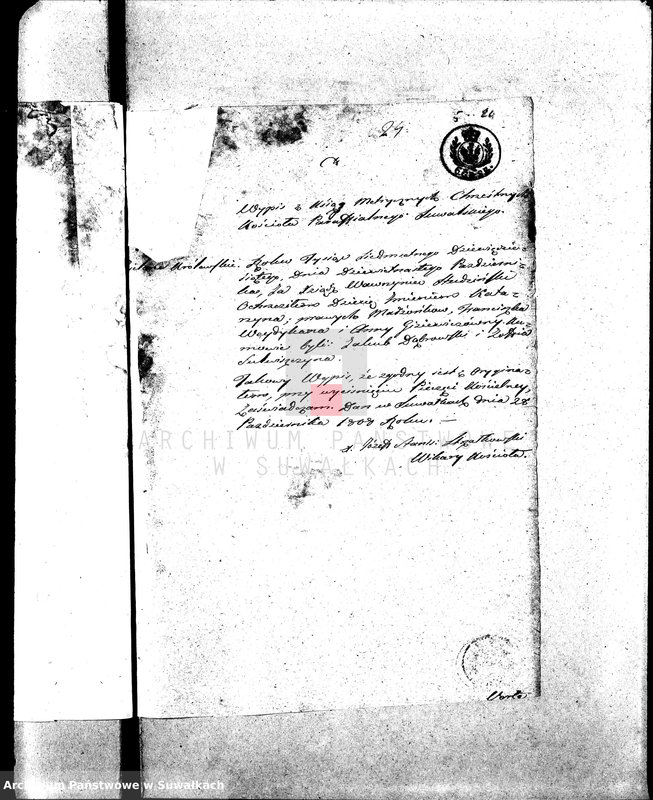 5 24
24.
Wypis z Xiąg Metrycznych Chrzestnych
Kościoła Parafialnego Suwalskiego.
Roku Tysiąc Siedmsetnego Dziewięćdzie-
siątego, Dnia Dziewiętnastego Paździer-
nika, Ja Xiądz Wawrzyniec
Ochrzciłem Dziecię Imieniem Kata-
rzyna; prawych Małżonków, Franciszka
Woydykana i Anny Giżewiczówny. Ku-
mowie byli: Jakub Dąbrowski i Zofija
Takowy Wypis, że zgodny jest z Orygina-
łem, przy wyciśnięciu Pieczęci Kościelney,
Zaświadczam. Dan w Suwałkach dnia 28
Października 1808 Roku. —
X. Józef
Wikary Kościoła.
Verte
ARCHIWUM PAŃSTWOWE
W SUWAŁKACH
Archiwum Państwowe w Suwałkach